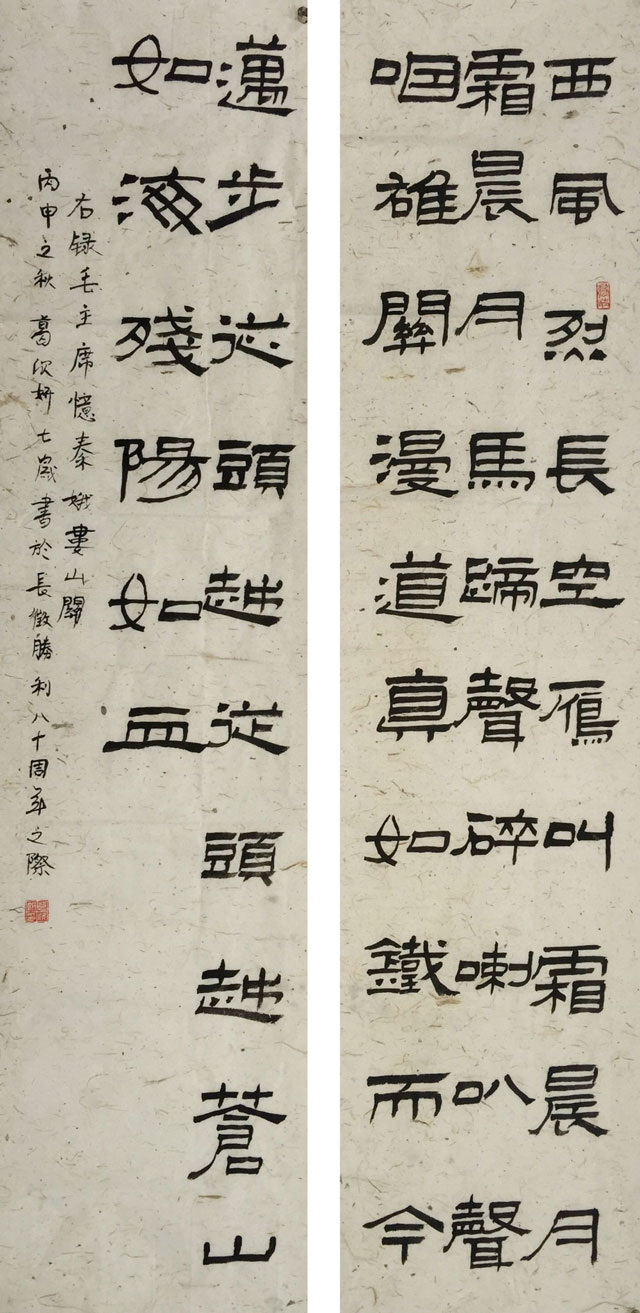 西風烈長空鴈叫霜晨月
霜晨月馬蹄聲碎喇叭聲
咽雄關漫道真如鐵而今
邁步従頭越従頭越蒼山
如海殘陽如血
右録毛主席憶秦娥婁山關
丙申之秋葛欣妍七歲書於長徵勝利八十周年之際